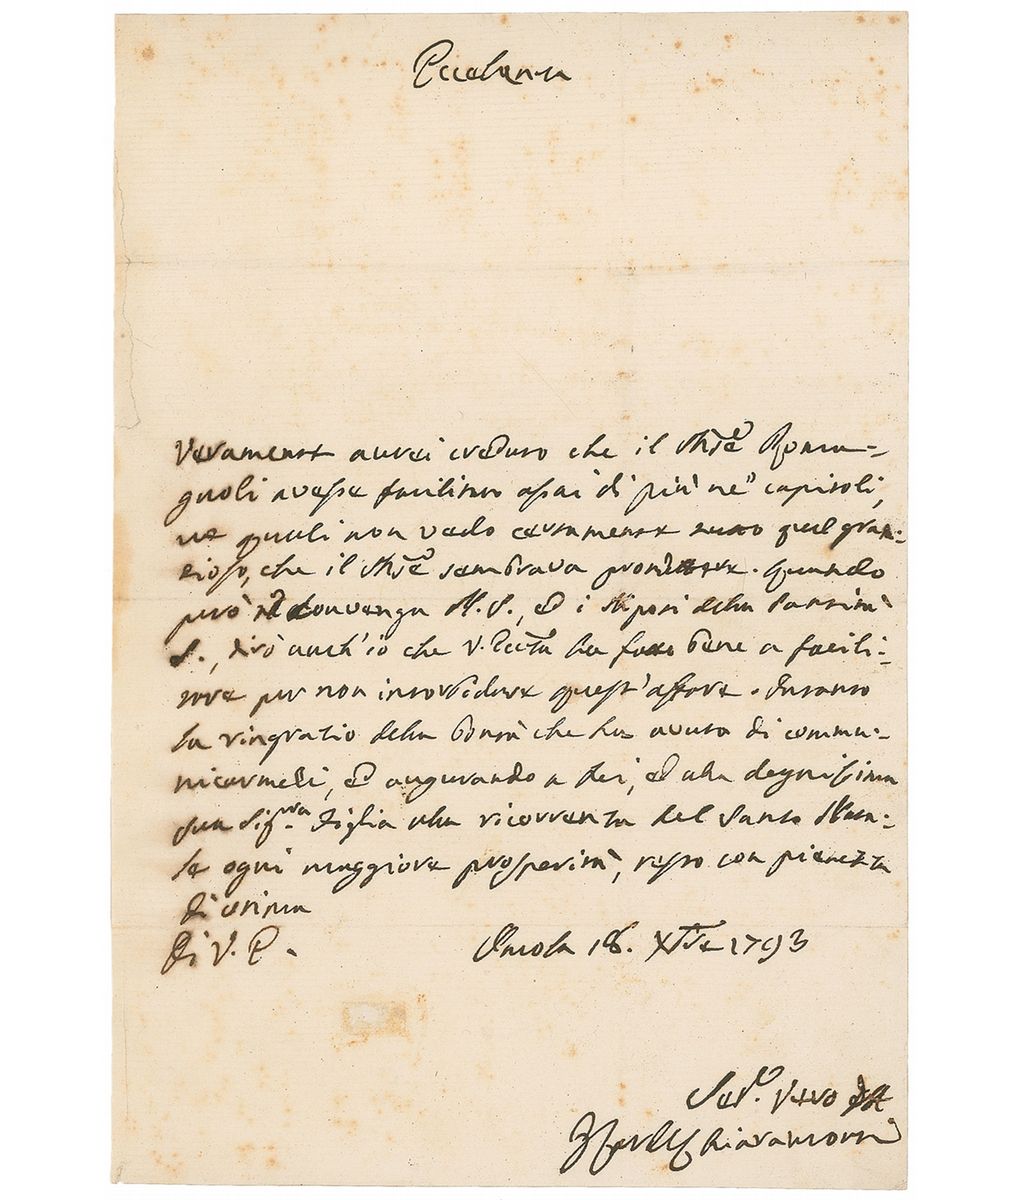 Eccelenza
Veramente avrei creduto che il Mse Roma-
gnoli avesse facilitato assai di più ne' capitoli,
ne quali non vedo certamente tutto quel gran-
dioso, che il Mse sembrava promettere. Quando
però convenga N. S., ed i Nipoti della Santità
S., dirò anch'io che V. Eccza ha fatto bene a facili-
tare per non intorbidare quest'affare. Intanto
la ringratio della bontà che ha avuta di commu-
nicarmeli, ed augurando a Lei, ed alla degnissima
sua Sigra Figlia nella ricorrenza del Santo Nata-
le ogni maggiore prosperità, resto con pienezza
di stima
Di V. E. Imola 18. Xbre 1793
Vero
Chiaramonti